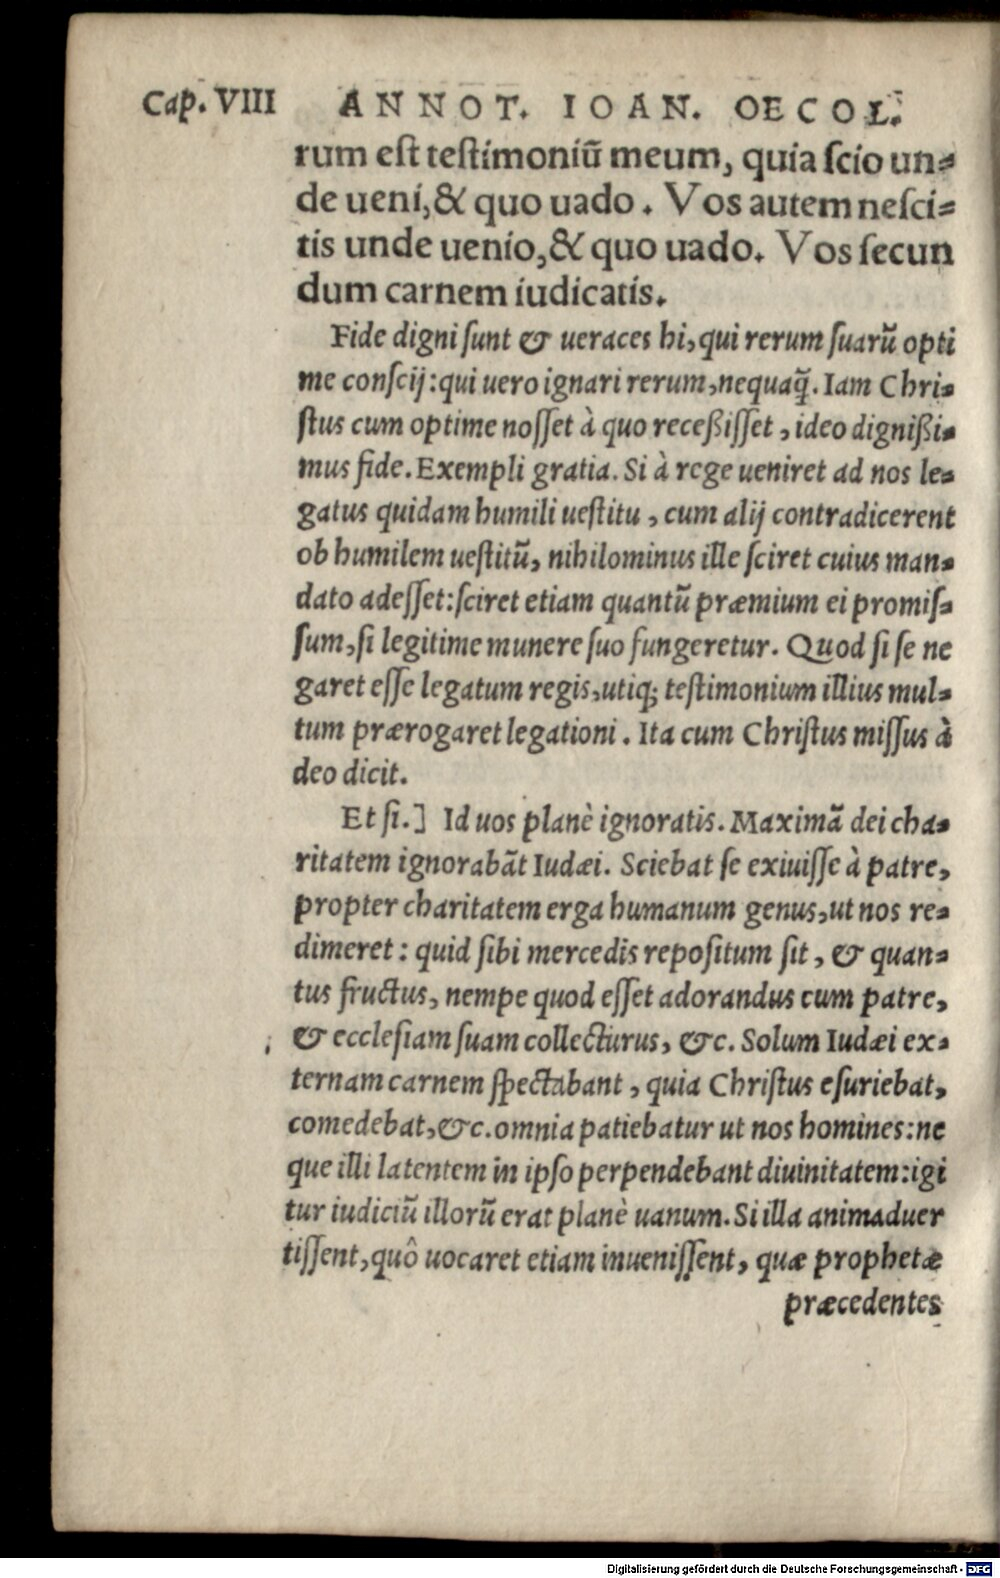 Cap. VIII ANNOT. IOAN. OECOL.
rum eſt teſtimoniū meum, quia ſcio un⸗
de ueni, & quo uado. Vos autem neſci⸗
tis unde uenio, & quo uado. Vos ſecun
dum carnem iudicatis.
Fide digni ſunt & ueraces hi, qui rerum ſuarū opti
me conſcij: qui uero ignari rerum, nequaq̃. Iam Chri⸗
ſtus cum optime noſſet à quo receßiſſet, ideo dignißi⸗
mus fide. Exempli gratia. Si à rege ueniret ad nos le⸗
gatus quidam humili ueſtitu, cum alij contradicerent
ob humilem ueſtitū, nihilominus ille ſciret cuius man⸗
dato adeſſet: ſciret etiam quantū præmium ei promiſ⸗
ſum, ſi legitime munere ſuo fungeretur. Quod ſi ſe ne
garet eſſe legatum regis, utiq; teſtimonium illius mul⸗
tum prærogaret legationi. Ita cum Chriſtus miſſus à
deo dicit.
Et ſi.] Id uos planè ignoratis. Maximã dei cha⸗
ritatem ignorabãt Iudæi. Sciebat ſe exiuiſſe à patre,
propter charitatem erga humanum genus, ut nos re⸗
dimeret: quid ſibi mercedis repoſitum ſit, & quan⸗
tus fructus, nempe quod eſſet adorandus cum patre,
& eccleſiam ſuam collecturus, &c. Solum Iudæi ex⸗
ternam carnem ſpectabant, quia Chriſtus eſuriebat,
comedebat, &c. omnia patiebatur ut nos homines: ne
que illi latentem in ipſo perpendebant diuinitatem: igi
tur iudiciū illorū erat planè uanum. Si illa animaduer
tiſſent, quô uocaret etiam inueniſſent, quæ prophetæ
præcedentes
Digitalisierung gefördert durch die Deutsche Forschungsgemeinschaft - DFG